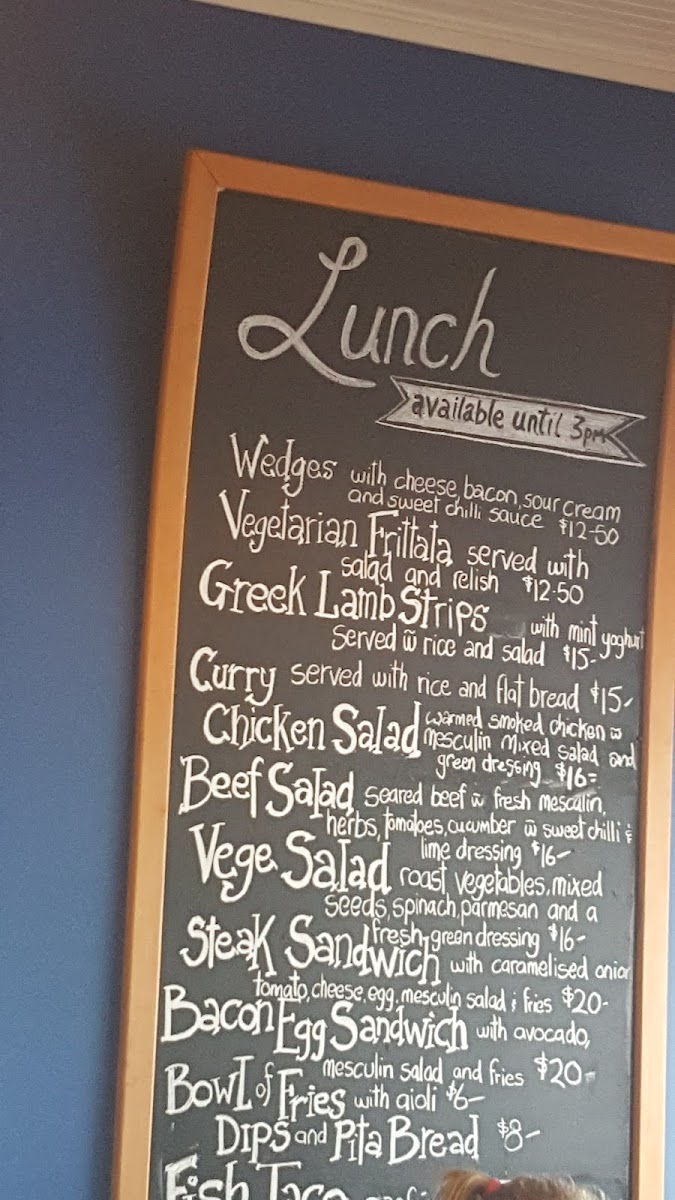 Lunch
available until 3pm
Wedges with cheese, bacon, sour cream
and sweet chilli sauce $12-50
Vegetarian Frittata served with
salad and relish $12.50
Greek Lamb Strips with mint yoghurt
served w̃ rice and salad $15-
Curry served with rice and flat bread $15-
Chicken Salad warmed smoked chicken w̃
mesculin mixed salad and
green dressing $16=
Beef Salad seared beef w̃ fresh mesculin,
herbs, tomatoes, cucumber w̃ sweet chilli &
lime dressing $16-
Vege Salad roast vegetables, mixed
seeds, spinach, parmesan and a
fresh green dressing $16-
Steak Sandwich with caramelised onion
tomato, cheese, egg, mesculin salad & fries $20-
Bacon Egg Sandwich with avocado,
mesculin salad and fries $20-
Bowl of Fries with aioli $6-
Dips and Pita Bread $8-
Fish Taco